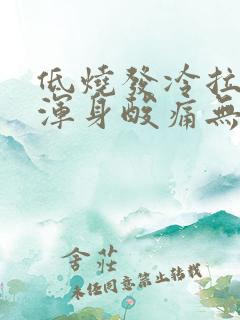 低燒發冷拉
渾身酸痛無
舍莊
未经同意禁止转载